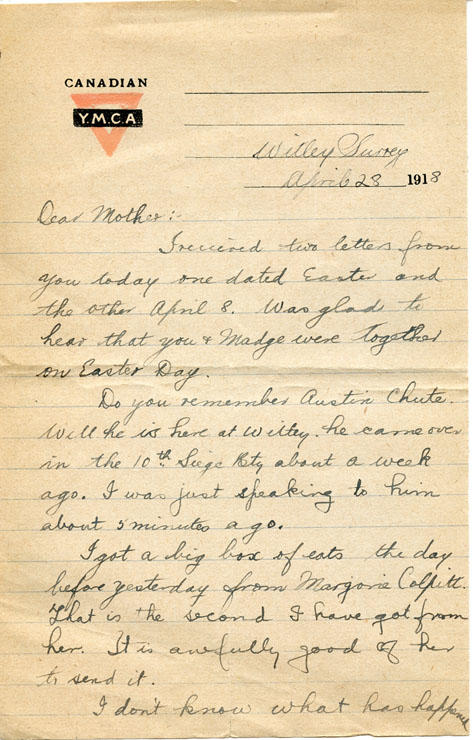 CANADIAN
Y.M.C.A.
Witley Surrey
April 28 1918
Dear Mother:-
I recieved two letters from
you today one dated Easter and
the other April 8. Was glad to
hear that you & Madge were together
on Easter Day.
Do you remember Austin Chute.
Will he is here at Witley. he came over
in the 10th Siege Bty about a week
ago. I was just speaking to him
about 5 minutes ago.
I got a big box of eats the day
before yesterday from Marjorie Colpitt.
That is the second I have got from
her. It is awfully good of her
to send it.
I don't know what has happened